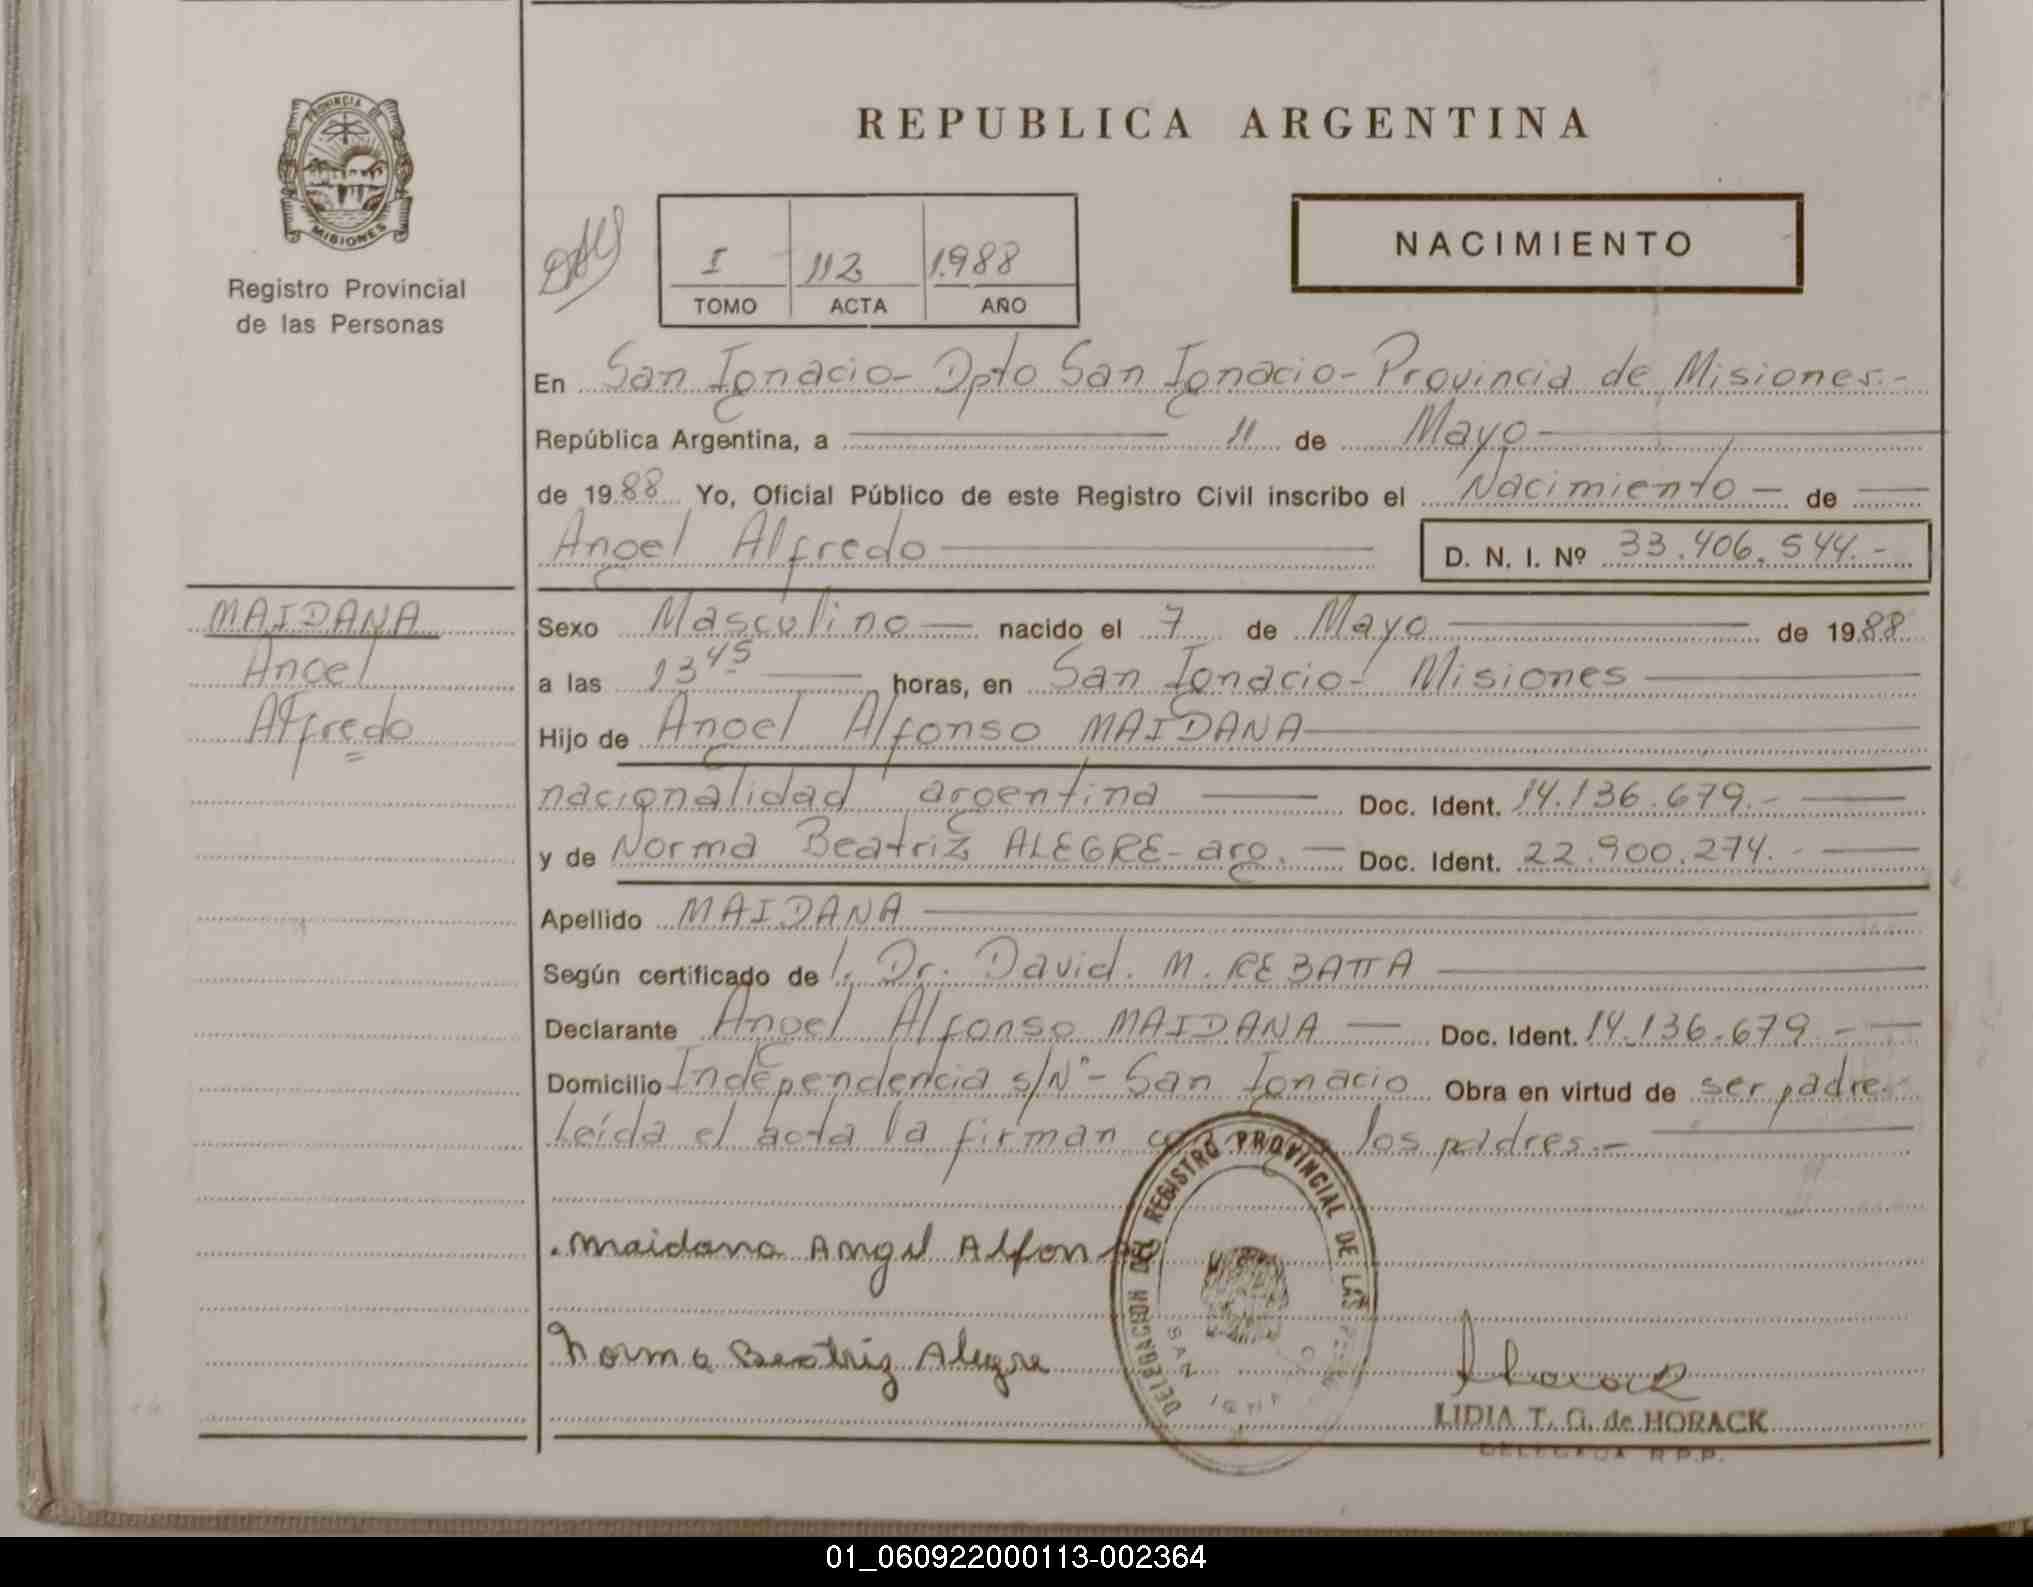 REPUBLICA ARGENTINA
PROVINCIA DE
MISIONES
Registro Provincial
de las Personas
I 112 1988
TOMO ACTA AÑO
NACIMIENTO
En San Ignacio- Dpto San Ignacio- Provincia de Misiones.-
República Argentina, a 11 de Mayo
de 1988 Yo, Oficial Público de este Registro Civil inscribo el Nacimiento — de
Angel Alfredo D. N. I. Nº 33.406.544.-
MAIDANA
Angel
Alfredo
Sexo Masculino — nacido el 7 de Mayo de 1988
a las 13 45 horas, en San Ignacio- Misiones
Hijo de Angel Alfonso MAIDANA
nacionalidad argentina Doc. Ident. 14.136.679.-
y de Norma Beatriz ALEGRE- arg. — Doc. Ident. 22.900.274.-
Apellido MAIDANA
Según certificado de Dr. David. M. REBATTA
Declarante Angel Alfonso MAIDANA — Doc. Ident. 14.136.679.-
Domicilio Independencia s/Nº- San Ignacio Obra en virtud de ser padre.
Leída el acta la firman los padres.-
Maidana Angel Alfonso
Norma Beatriz Alegre
DELEGACION DEL REGISTRO PROVINCIAL DE LAS
SAN
Horack
LIDIA T. G. de HORACK
DELEGADA R.P.P.
01_060922000113-002364